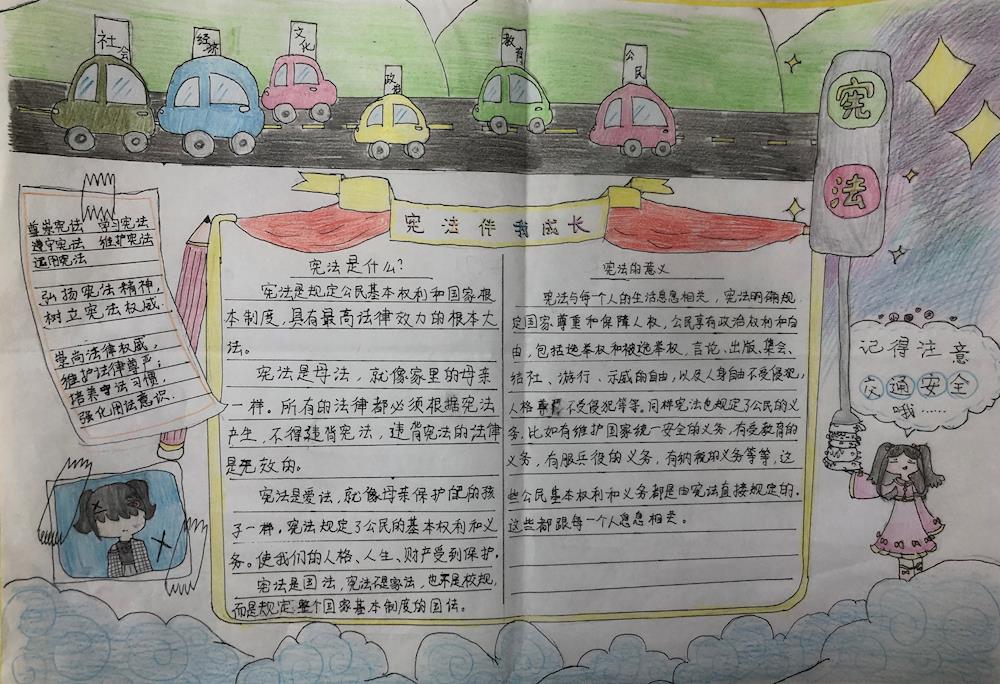 社会
经济
文化
政治
教育
公民
宪
法
宪法伴我成长
尊崇宪法 学习宪法
遵守宪法 维护宪法
运用宪法
弘扬宪法精神，
树立宪法权威.
崇尚法律权威，
维护法律尊严；
培养守法习惯，
强化用法意识.
宪法是什么？
宪法是规定公民基本权利和国家根
本制度，具有最高法律效力的根本大
法。
宪法是母法，就像家里的母亲
一样。所有的法律都必须根据宪法
产生，不得违背宪法，违背宪法的法律
是无效的。
宪法是爱法，就像母亲保护自己的孩
子一样。宪法规定了公民的基本权利和义
务。使我们的人格、人生、财产受到保护.
宪法是国法，宪法不是家法，也不是校规，
而是规定整个国家基本制度的国法。
宪法的意义
宪法与每个人的生活息息相关，宪法明确规
定国家尊重和保障人权，公民享有政治权利和自
由，包括选举权和被选举权，言论、出版、集会、
结社、游行、示威的自由，以及人身自由不受侵犯，
人格尊严不受侵犯等等。同样宪法也规定了公民的义
务，比如有维护国家统一安全的义务，有受教育的
义务，有服兵役的义务，有纳税的义务等等，这
些公民基本权利和义务都是由宪法直接规定的.
这些都跟每一个人息息相关。
记得注意
交通安全
哦……